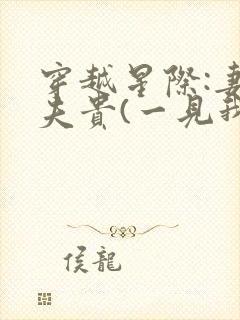 穿越星際:妻
夫貴(一見我
侯龍